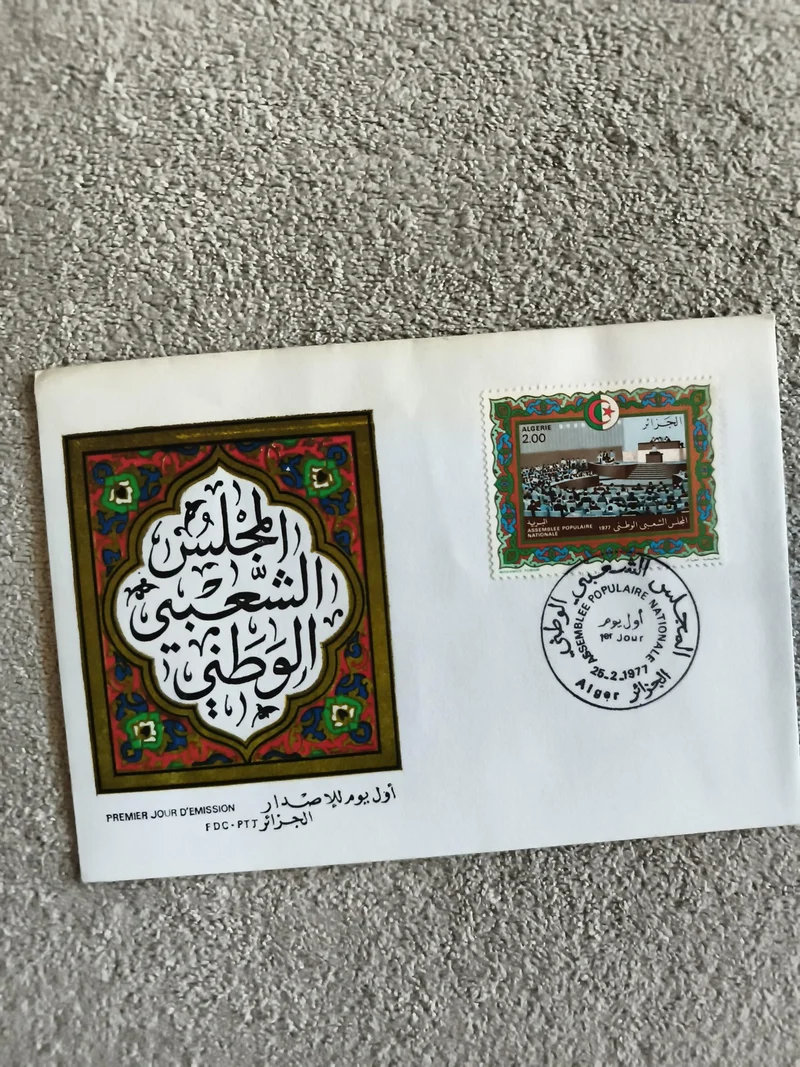 المجلس
الشعبي
الوطني
PREMIER JOUR D'EMISSION
أول يوم للإصدار
FDC-PTT الجزائر
ALGERIE
2.00
الجزائر
البريد
ASSEMBLEE POPULAIRE
NATIONALE
1977
المجلس الشعبي الوطني
المجلس الشعبي الوطني
ASSEMBLEE POPULAIRE NATIONALE
أول يوم
1er Jour
25-2-1977
Alger الجزائر